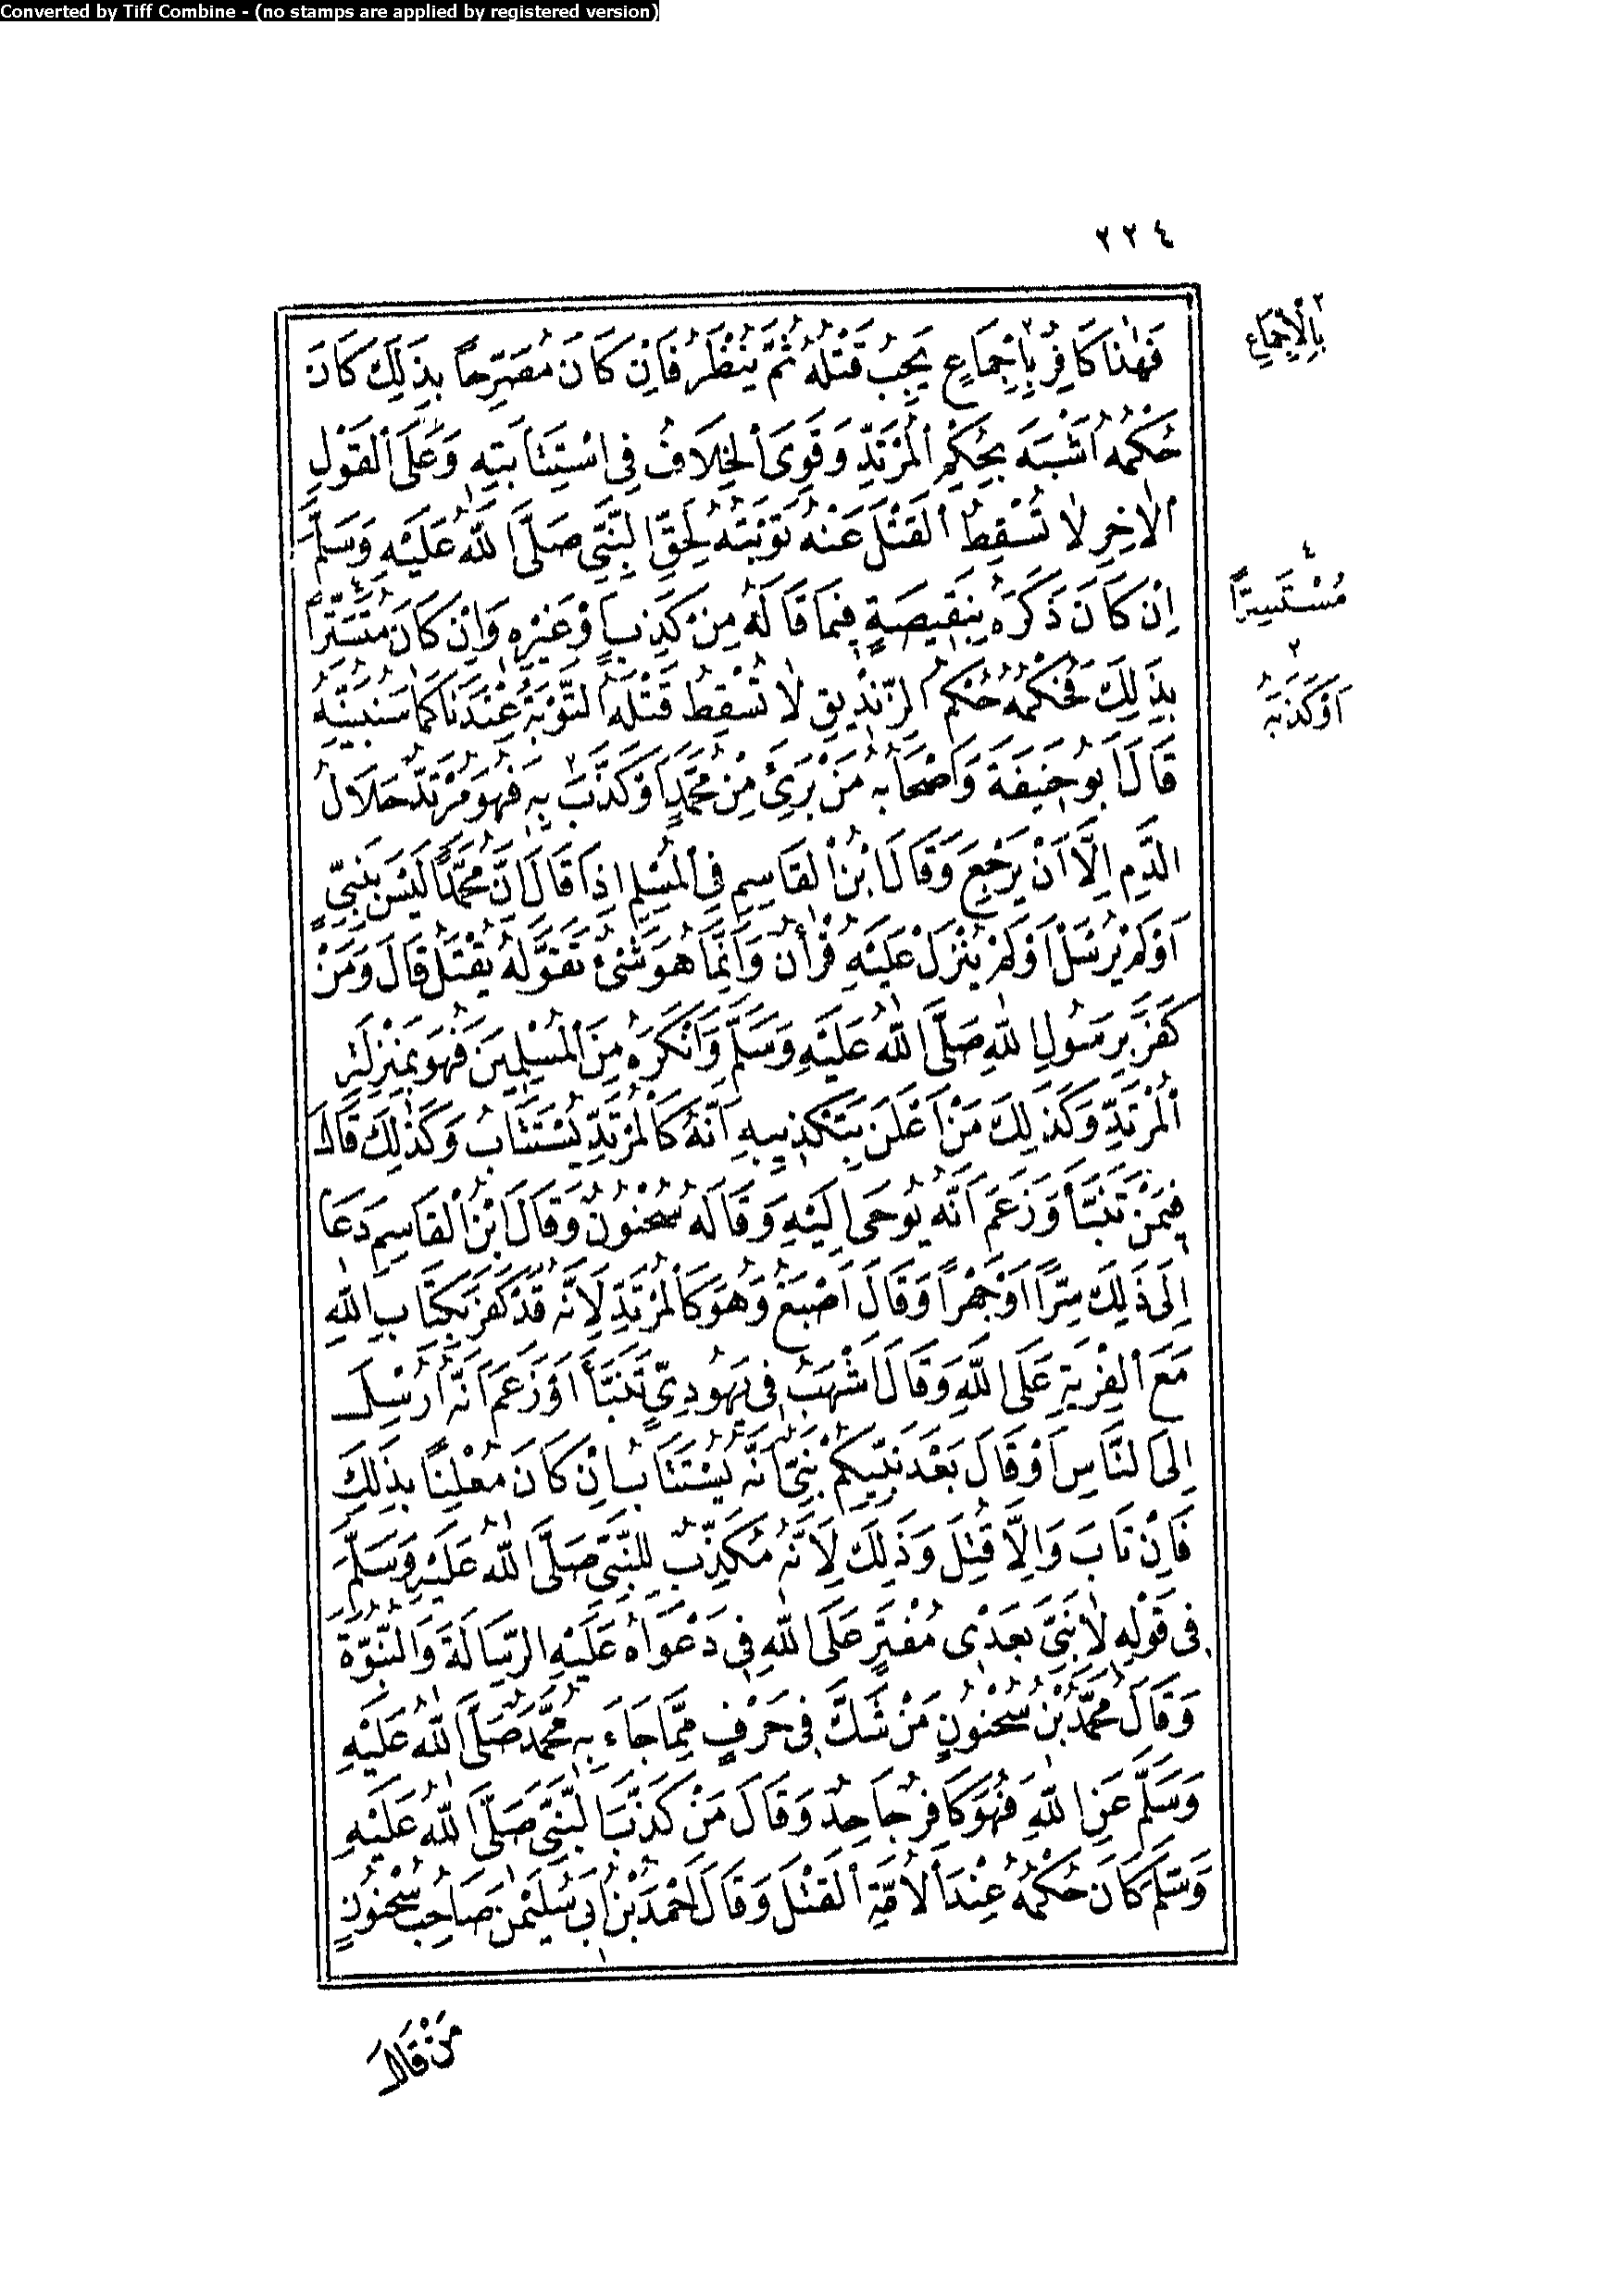 Converted by Tiff Combine - (no stamps are applied by registered version)
٢٢٤
فَهٰذَا كَافِرٌ بِاِجْمَاعٍ يَجِبُ قَتْلُهُ ثُمَّ يُنْظَرُ فَاِنْ كَانَ مُصَرِّحًا بِذٰلِكَ كَانَ
حُكْمُهُ اَشْبَهَ بِحُكْمِ الْمُرْتَدِّ وَقَوِىَ الْخِلَافُ فِى اسْتِتَابَتِهِ وَعَلَى الْقَوْلِ
الْاٰخِرِ لَا تُسْقِطُ الْقَتْلَ عَنْهُ تَوْبَتُهُ لِحَقِّ النَّبِىِّ صَلَّى اللّٰهُ عَلَيْهِ وَسَلَّمَ
اِنْ كَانَ ذَكَرَهُ بِنَقِيصَةٍ فِيمَا قَالَهُ مِنْ كَذِبٍ اَوْ غَيْرِهِ وَاِنْ كَانَ مُتَسَتِّرًا
بِذٰلِكَ فَحُكْمُهُ حُكْمُ الزِّنْدِيقِ لَا تُسْقِطُ قَتْلَهُ التَّوْبَةُ عِنْدَنَا كَمَا سَنُبَيِّنُهُ
قَالَ اَبُو حَنِيفَةَ وَاَصْحَابُهُ مَنْ بَرِئَ مِنْ مُحَمَّدٍ اَوْ كَذَّبَ بِهِ فَهُوَ مُرْتَدٌّ حَلَالُ
الدَّمِ اِلَّا اَنْ يَرْجِعَ وَقَالَ ابْنُ الْقَاسِمِ فِى الْمُسْلِمِ اِذَا قَالَ اِنَّ مُحَمَّدًا لَيْسَ بِنَبِىٍّ
اَوْ لَمْ يُرْسَلْ اَوْ لَمْ يُنْزَلْ عَلَيْهِ قُرْاٰنٌ وَاِنَّمَا هُوَ شَىْءٌ تَقَوَّلَهُ يُقْتَلُ قَالَ وَمَنْ
كَفَرَ بِرَسُولِ اللّٰهِ صَلَّى اللّٰهُ عَلَيْهِ وَسَلَّمَ وَاَنْكَرَهُ مِنَ الْمُسْلِمِينَ فَهُوَ بِمَنْزِلَةِ
الْمُرْتَدِّ وَكَذٰلِكَ مَنْ اَعْلَنَ بِتَكْذِيبِهِ اَنَّهُ كَالْمُرْتَدِّ يُسْتَتَابُ وَكَذٰلِكَ قَالَ
فِيمَنْ تَنَبَّأَ وَزَعَمَ اَنَّهُ يُوحَى اِلَيْهِ وَقَالَهُ سُحْنُونٌ وَقَالَ ابْنُ الْقَاسِمِ دَعَا
اِلَى ذٰلِكَ سِرًّا اَوْ جَهْرًا وَقَالَ اَصْبَغُ وَهُوَ كَالْمُرْتَدِّ لِاَنَّهُ قَدْ كَفَرَ بِكِتَابِ اللّٰهِ
مَعَ الْفِرْيَةِ عَلَى اللّٰهِ وَقَالَ اَشْهَبُ فِى يَهُودِىٍّ تَنَبَّأَ اَوْ زَعَمَ اَنَّهُ اُرْسِلَ
اِلَى النَّاسِ اَوْ قَالَ بَعْدَ نَبِيِّكُمْ نَبِىٌّ اَنَّهُ يُسْتَتَابُ اِنْ كَانَ مُعْلِنًا بِذٰلِكَ
فَاِنْ تَابَ وَاِلَّا قُتِلَ وَذٰلِكَ لِاَنَّهُ مُكَذِّبٌ لِلنَّبِىِّ صَلَّى اللّٰهُ عَلَيْهِ وَسَلَّمَ
فِى قَوْلِهِ لَا نَبِىَّ بَعْدِى مُفْتَرٍ عَلَى اللّٰهِ فِى دَعْوَاهُ عَلَيْهِ الرِّسَالَةَ وَالنُّبُوَّةَ
وَقَالَ مُحَمَّدُ بْنُ سُحْنُونٍ مَنْ شَكَّ فِى حَرْفٍ مِمَّا جَاءَ بِهِ مُحَمَّدٌ صَلَّى اللّٰهُ عَلَيْهِ
وَسَلَّمَ عَنِ اللّٰهِ فَهُوَ كَافِرٌ جَاحِدٌ وَقَالَ مَنْ كَذَّبَ النَّبِىَّ صَلَّى اللّٰهُ عَلَيْهِ
وَسَلَّمَ كَانَ حُكْمُهُ عِنْدَ الْاُمَّةِ الْقَتْلَ وَقَالَ اَحْمَدُ بْنُ اَبِى سُلَيْمٰنَ صَاحِبُ سُحْنُونٍ
مَنْ قَالَ
٢
بِالْاِجْمَاعِ
٤
مُسْتَسِرًّا
٢
اَوْ كَذَّبَهُ